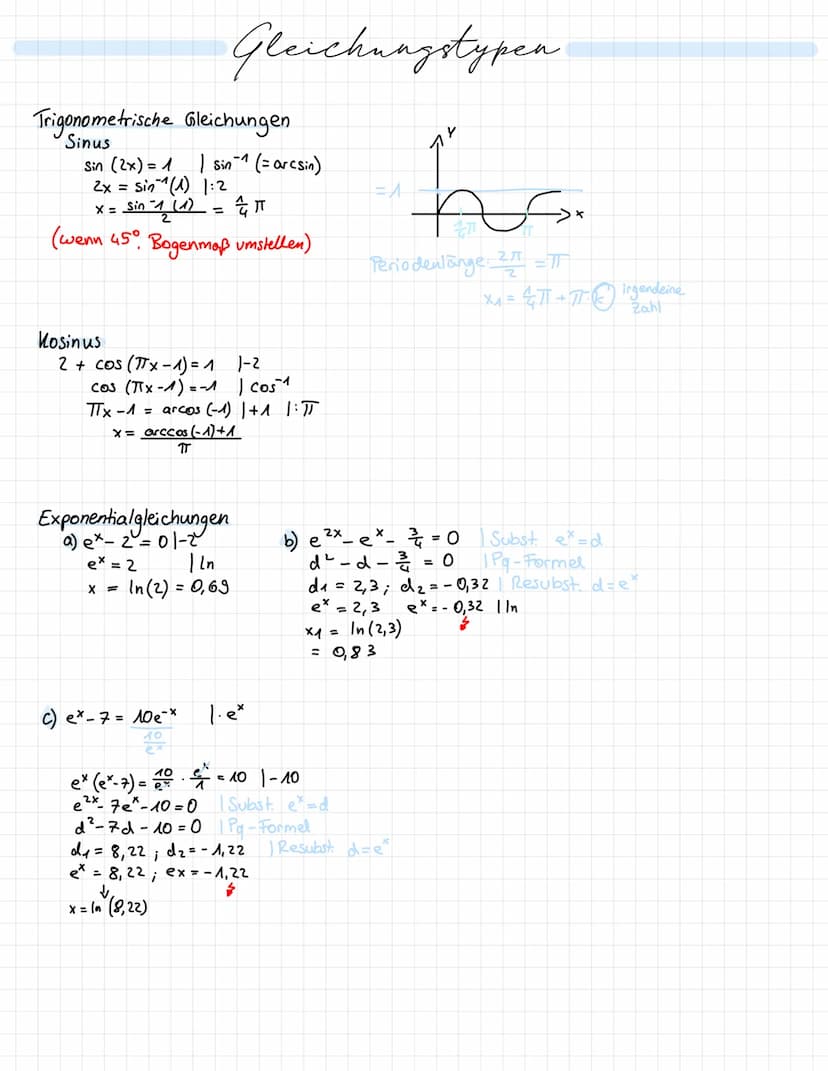 Gleichungstypen
Trigonometrische Gleichungen
Sinus
sin (2x) = 1 | sin⁻¹ (= arcsin)
2x = sin⁻¹(1) |:2
x = sin⁻¹(1)/2 = 1/4 π
(wenn 45°, Bogenmaß umstellen)
y
= 1
x
1/4π π
Periodenlänge: 2π/2 = π
x₁ = 1/4 π + π·k irgendeine
Zahl
Kosinus
2 + cos (πx - 1) = 1 |-2
cos (πx - 1) = -1 | cos⁻¹
πx - 1 = arcos (-1) |+1 |:π
x = arccos(-1)+1/π
Exponentialgleichungen
a) eˣ - 2 = 0 |-2
eˣ = 2 | ln
x = ln(2) = 0,69
b) e²ˣ - eˣ - 3/4 = 0 | Subst. eˣ = d
d² - d - 3/4 = 0 | Pq-Formel
d₁ = 2,3 ; d₂ = - 0,32 | Resubst. d = eˣ
eˣ = 2,3 eˣ = - 0,32 | ln
x₁ = ln(2,3)
= 0,83
c) eˣ - 7 = 10e⁻ˣ |· eˣ
10/eˣ
eˣ (eˣ-7) = 10/eˣ · eˣ/1 = 10 |-10
e²ˣ - 7eˣ - 10 = 0 | Subst. eˣ = d
d² - 7d - 10 = 0 | Pq-Formel
d₁ = 8,22 ; d₂ = - 1,22 | Resubst. d = eˣ
eˣ = 8,22 ; ex = - 1,22
↓
x = ln (8,22)